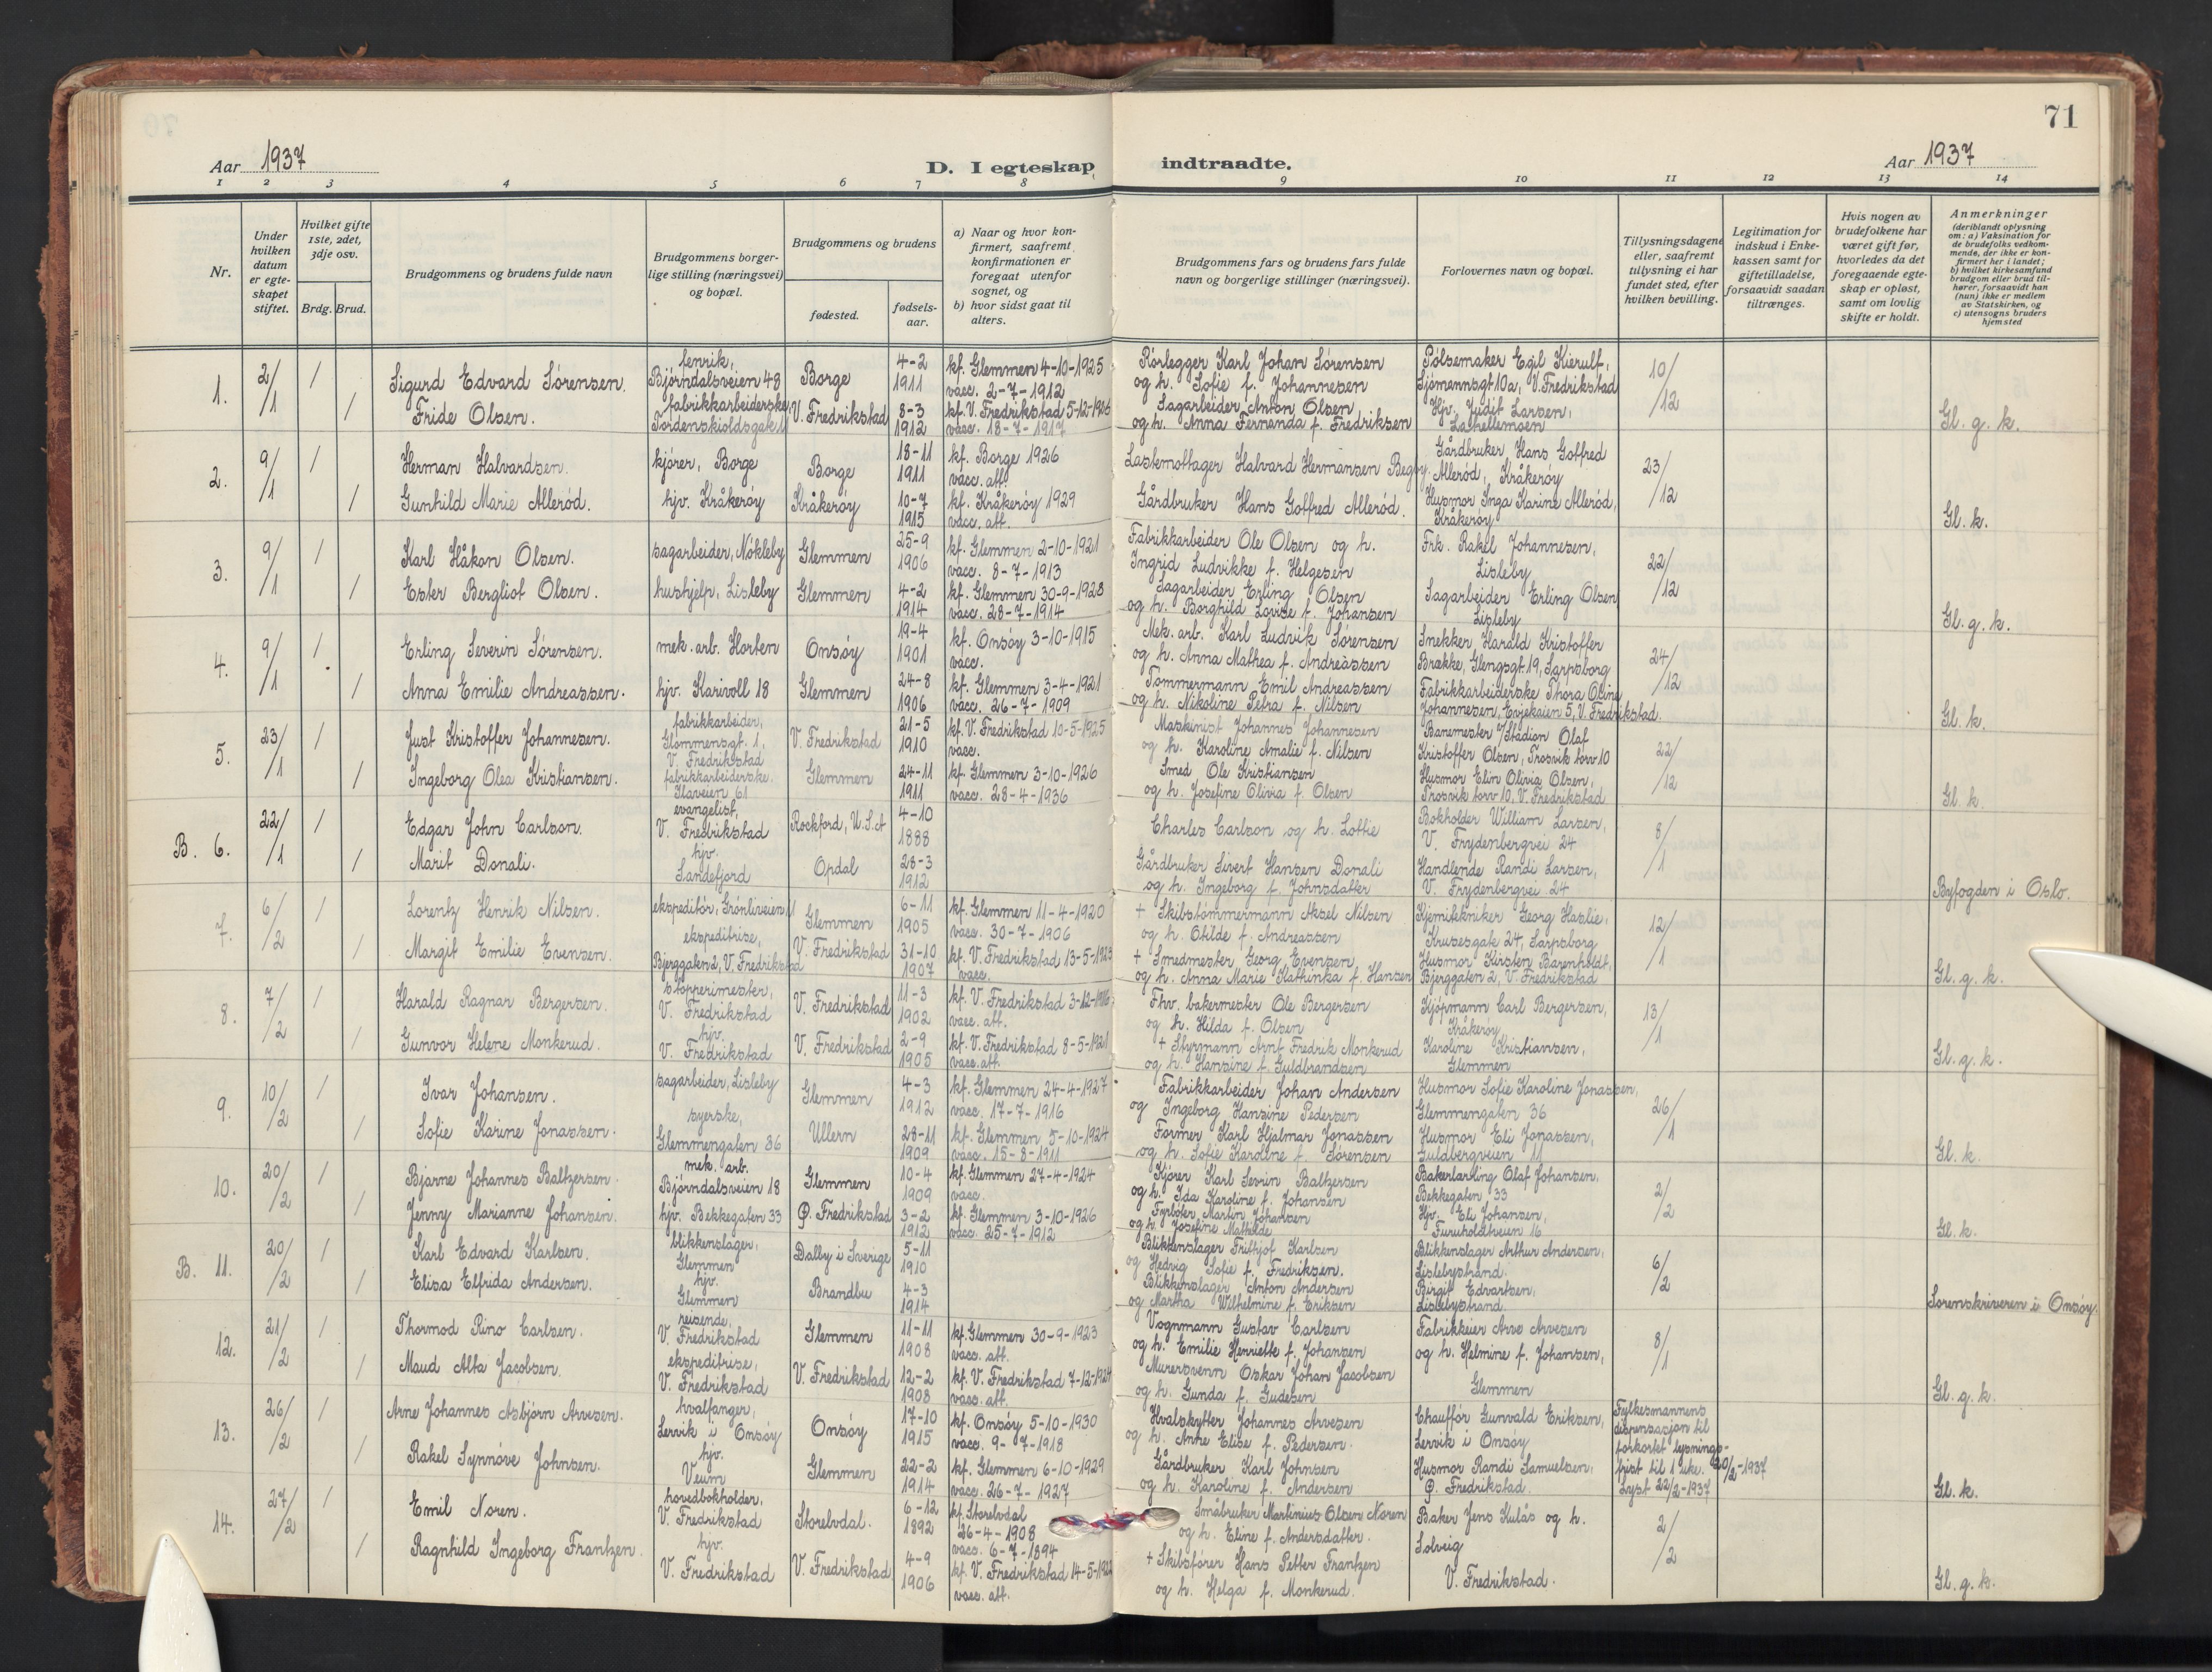 71
Aar 1937
D. I egteskap indtraadte.
Aar 1937
1 2 3 4 5 6 7 8 9 10 11 12 13 14
Nr.
Under hvilken datum er egteskapet stiftet.
Hvilket gifte 1ste, 2det, 3dje osv.
Brdg. Brud.
Brudgommens og brudens fulde navn
Brudgommens borgerlige stilling (næringsvei) og bopæl.
Brudgommens og brudens
fødested.
fødselsaar.
a) Naar og hvor konfirmert, saafremt konfirmationen er foregaat utenfor sognet, og
b) hvor sidst gaat til alters.
Brudgommens fars og brudens fars fulde navn og borgerlige stillinger (næringsvei).
Forlovernes navn og bopæl.
Tillysningsdagene eller, saafremt tillysning ei har fundet sted, efter hvilken bevilling.
Legitimation for indskud i Enkekassen samt for giftetilladelse, forsaavidt saadan tiltrænges.
Hvis nogen av brudefolkene har været gift før, hvorledes da det foregaaende egteskap er opløst, samt om lovlig skifte er holdt.
Anmerkninger
(deriblandt oplysning om: a) Vaksination for de brudefolks vedkommende, der ikke er konfirmert her i landet; b) hvilket kirkesamfund brudgom eller brud tilhører, forsaavidt han (hun) ikke er medlem av Statskirken, og c) utensogns bruders hjemsted
1. 2/1 1 Sigurd Edvard Sörensen. Bjørndalsveien 48 Borge 4-2 1911 kf. Glemmen 4-10-1925 vacc. 2-7-1912 Rörlegger Karl Johan Sörensen og h. Sofie f. Johannesen Pölsemaker Egil Kierulf, Sjömannsgt 10a, V. Fredrikstad 10/12
1 Fride Olsen. fabrikkarbeiderske, Tordenskioldsgate V. Fredrikstad 8-3 1912 kf. V. Fredrikstad 5-12-1926 vacc. 18-7-1917 Sagarbeider Anton Olsen og h. Anna Fernanda f. Fredriksen Hjv. Judit Larsen, Gl. g. k.
2. 9/1 1 Herman Halvardsen. kjörer, Borge Borge 18-11 1911 kf. Borge 1926 vacc. att. Lastemottager Halvard Hermansen Begby. Gårdbruker, Hans Gotfred Alleröd, Kråkeröy 23/12
1 Gunhild Marie Alleröd. hjv. Kråkeröy Kråkeröy 10-7 1915 kf. Kråkeröy 1929 vacc. att. Gårdbruker Hans Gotfred Alleröd. Husmor Inga Karine Alleröd, Kråkeröy Gl. k.
3. 9/1 1 Karl Håkon Olsen. sagarbeider, Nökleby Glemmen 25-9 1906 kf. Glemmen 2-10-1921 vacc. 8-7-1913 Fabrikkarbeider Ole Olsen og h. Ingrid Ludvikke f. Helgesen Frk. Rakel Johannesen, Lisleby 22/12
1 Ester Bergliot Olsen. hushjelp, Lisleby Glemmen 4-2 1914 kf. Glemmen 30-9-1928 vacc. 28-7-1914 Sagarbeider Erling Olsen og h. Borghild Lovise f. Johansen Sagarbeider Erling Olsen Lisleby Gl. g. k.
4. 9/1 1 Erling Severin Sörensen. mek. arb. Horten Onsöy 19-4 1901 kf. Onsöy 3-10-1915 vacc. Mek. arb. Karl Ludvik Sörensen og h. Anna Mathea f. Andreassen Snekker Harald Kristoffer Brække, Glengsgt. 19, Sarpsborg 24/12
1 Anna Emilie Andreassen. hjv. Karivoll 18 Glemmen 24-8 1906 kf. Glemmen 3-4-1921 vacc. 26-7-1909 Tömmermann Emil Andreassen og h. Nikoline Petra f. Nilsen Fabrikkarbeiderske Thora Oline Johannesen, Evjekaien 5, V. Fredrikstad. Gl. k.
5. 23/1 1 Just Kristoffer Johannesen. fabrikkarbeider, Glommensgt. 1, V. Fredrikstad V. Fredrikstad 21-5 1910 kf. V. Fredrikstad 10-5-1925 vacc. Maskinist Johannes Johannesen og h. Karoline Amalie f. Nilsen Banemester v/Stadion Olaf Kristoffer Olsen, Trosvik torv 10 22/12
1 Ingeborg Olea Kristiansen. fabrikkarbeiderske. Ilaveien 61 Glemmen 24-11 1911 kf. Glemmen 3-10-1926 vacc. 28-4-1936 Smed Ole Kristiansen og h. Josefine Olivia f. Olsen Husmor Elin Olivia Olsen, Trosvik torv 10, V. Fredrikstad Gl. k.
B. 6. 22/1 1 Edgar John Carlson. evangelist, V. Fredrikstad Rockford, U.S.A 4-10 1888 Charles Carlson og h. Lottie Bokholder William Larsen, V. Frydenbergvei 24 8/1
1 Marit Donali. hjv. Sandefjord Opdal 28-3 1912 Gårdbruker Sivert Hansen Donali og h. Ingeborg f. Johnsdatter Handlende Randi Larsen, V. Frydenbergvei 24 Byfogden i Oslo.
7. 6/2 1 Lorentz Henrik Nilsen. ekspeditör, Grönliveien Glemmen 6-11 1905 kf. Glemmen 11-4-1920 vacc. 30-7-1906 + Skibstömmermann Aksel Nilsen og h. Otilde f. Andreassen Kjemitekniker Georg Haslie, Krusesgate 24, Sarpsborg 12/1
1 Margit Emilie Evensen. ekspeditrise, Bjerggaten 2, V. Fredrikstad V. Fredrikstad 31-10 1907 kf. V. Fredrikstad 13-5-1923 vacc. + Smedmester Georg Evensen og h. Anna Marie Kathinka f. Hansen Husmor Kirsten Barenholdt, Bjerggaten 2, V. Fredrikstad Gl. g. k.
8. 7/2 1 Harald Ragnar Bergersen. stopperimester, V. Fredrikstad V. Fredrikstad 11-3 1902 kf. V. Fredrikstad 3-12-1916 vacc. att. Fhv. bakermester Ole Bergersen og h. Hilda f. Olsen Kjöpmann Carl Bergersen, Kråkeröy 13/1
1 Gunvor Helene Monkerud. hjv. V. Fredrikstad V. Fredrikstad 2-9 1905 kf. V. Fredrikstad 8-5-1921 vacc. att. + Styrmann Arnt Fredrik Monkerud og h. Hansine f. Guldbrandsen Karoline Kristiansen, Glemmen Gl. g. k.
9. 10/2 1 Ivar Johansen. sagarbeider, Lisleby Glemmen 4-3 1912 kf. Glemmen 24-4-1927 vacc. 17-7-1916 Fabrikkarbeider Johan Andersen og Ingeborg Hansine Pedersen Husmor Sofie Karoline Jonassen, Glemmengaten 36 26/1
1 Sofie Karine Jonassen. syerske, Glemmengaten 36 Ullern 28-11 1909 kf. Glemmen 5-10-1924 vacc. 15-8-1911 Former Karl Hjalmar Jonassen og h. Sofie Karoline f. Sörensen Husmor Eli Jonassen, Guldbergveien 11 Gl. k.
10. 20/2 1 Bjarne Johannes Baltzersen. mek. arb. Bjørndalsveien 18 Glemmen 10-4 1909 kf. Glemmen 27-4-1924 vacc. Kjörer Karl Sevrin Baltzersen og h. Ida Karoline f. Johansen Bakerlærling Olaf Johansen, Bekkegaten 33 2/2
1 Jenny Marianne Johansen. hjv. Bekkegaten 33 Ø. Fredrikstad 3-2 1912 kf. Glemmen 3-10-1926 vacc. 25-7-1912 Fyrböter Martin Johansen og h. Josefine Mathilde Hjv. Eli Johansen, Furuholdtveien 16 Gl. k.
B. 11. 20/2 1 Karl Edvard Karlsen. blikkenslager, Glemmen Dalby i Sverige 5-11 1910 Blikkenslager Frithjof Karlsen og Hedvig Sofie f. Fredriksen. Blikkenslager Arthur Andersen, Lislebystrand. 6/2
1 Elisa Elfrida Andersen. hjv. Glemmen Brandbu 4-3 1914 Blikkenslager Anton Andersen og Martha Wilhelmine f. Eriksen Birgit Edvartsen, Lislebystrand Sorenskriveren i Onsöy.
12. 21/2 1 Thormod Rino Carlsen. reisende, V. Fredrikstad Glemmen 11-11 1908 kf. Glemmen 30-9-1923 vacc. att. Vognmann Gustav Carlsen og h. Emilie Henriette f. Johansen Fabrikkeier Arve Arvesen og h. Helmine f. Johansen, Glemmen 8/1
1 Maud Alta Jacobsen. ekspeditrise, V. Fredrikstad V. Fredrikstad 12-2 1908 kf. V. Fredrikstad 7-12-1924 vacc. att. Murersvenn Oskar Johan Jacobsen og h. Gunda f. Gudesen Gl. g. k.
13. 26/2 1 Arne Johannes Asbjörn Arvesen. hvalfanger, Lervik i Onsöy Onsöy 17-10 1915 kf. Onsöy 5-10-1930 vacc. 9-7-1918 Hvalskytter Johannes Arvesen og h. Anne Elise f. Pedersen. Chaufför Gunvald Eriksen, Lervik i Onsöy Fylkesmannens dispensasjon til forkortet lysningsfrist til 1 uke. 20/2-1937 Lyst 22/2-1937
1 Rakel Synnöve Johnsen. hjv. Veum Glemmen 22-2 1914 kf. Glemmen 6-10-1929 vacc. 26-7-1927 Gårdbruker Karl Johnsen og h. Karoline f. Andersen Husmor Randi Samuelsen, Ø. Fredrikstad. Gl. k.
14. 27/2 1 Emil Noren. hovedbokholder, V. Fredrikstad Storelvdal. 6-12 1892 kf. Storelvdal 26-4-1908 vacc. 6-7-1894 Småbruker Martinius Olsen Noren og h. Eline f. Andersdatter. Baker Jens Kulås og h. Solveig V. Fredrikstad. 2/2
1 Ragnhild Ingeborg Frantzen. hjv. V. Fredrikstad V. Fredrikstad 4-9 1906 kf. V. Fredrikstad 14-5-1922 vacc. att. + Skibsförer Hans Petter Frantzen og h. Helga f. Monkerud. Gl. g. k.